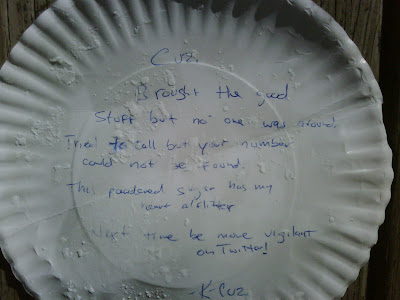 Cuz,
Brought the good
Stuff but no one was around.
Tried to call but your number
could not be found.
This powdered sugar has my
heart aflitter
Next time be more vigilant
on Twitter!
-K Cuz